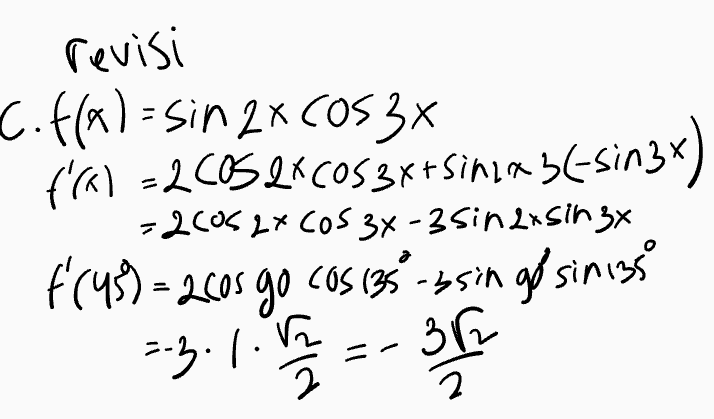 revisi
c. f(x) = sin 2x cos 3x
f'(x) = 2 cos 2x cos 3x + sin 2x 3(-sin 3x)
= 2 cos 2x cos 3x - 3 sin 2x sin 3x
f'(45°) = 2 cos 90 cos 135° - 3 sin 90° sin 135°
= -3 · 1 · √2/2 = - 3√2/2